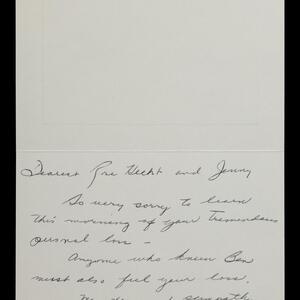 Dearest Rose Hecht and Jenny
So very sorry to learn
this morning of your tremendous
personal loss –
Anyone who knew Ben
must also feel your loss.
My deepest sympathy